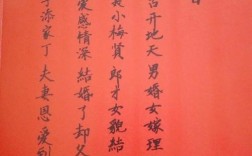 古开地天男婚女嫁理
小梅賞郎才女貌結
爱感情深結婚了却父
子添家丁夫妻恩爱到